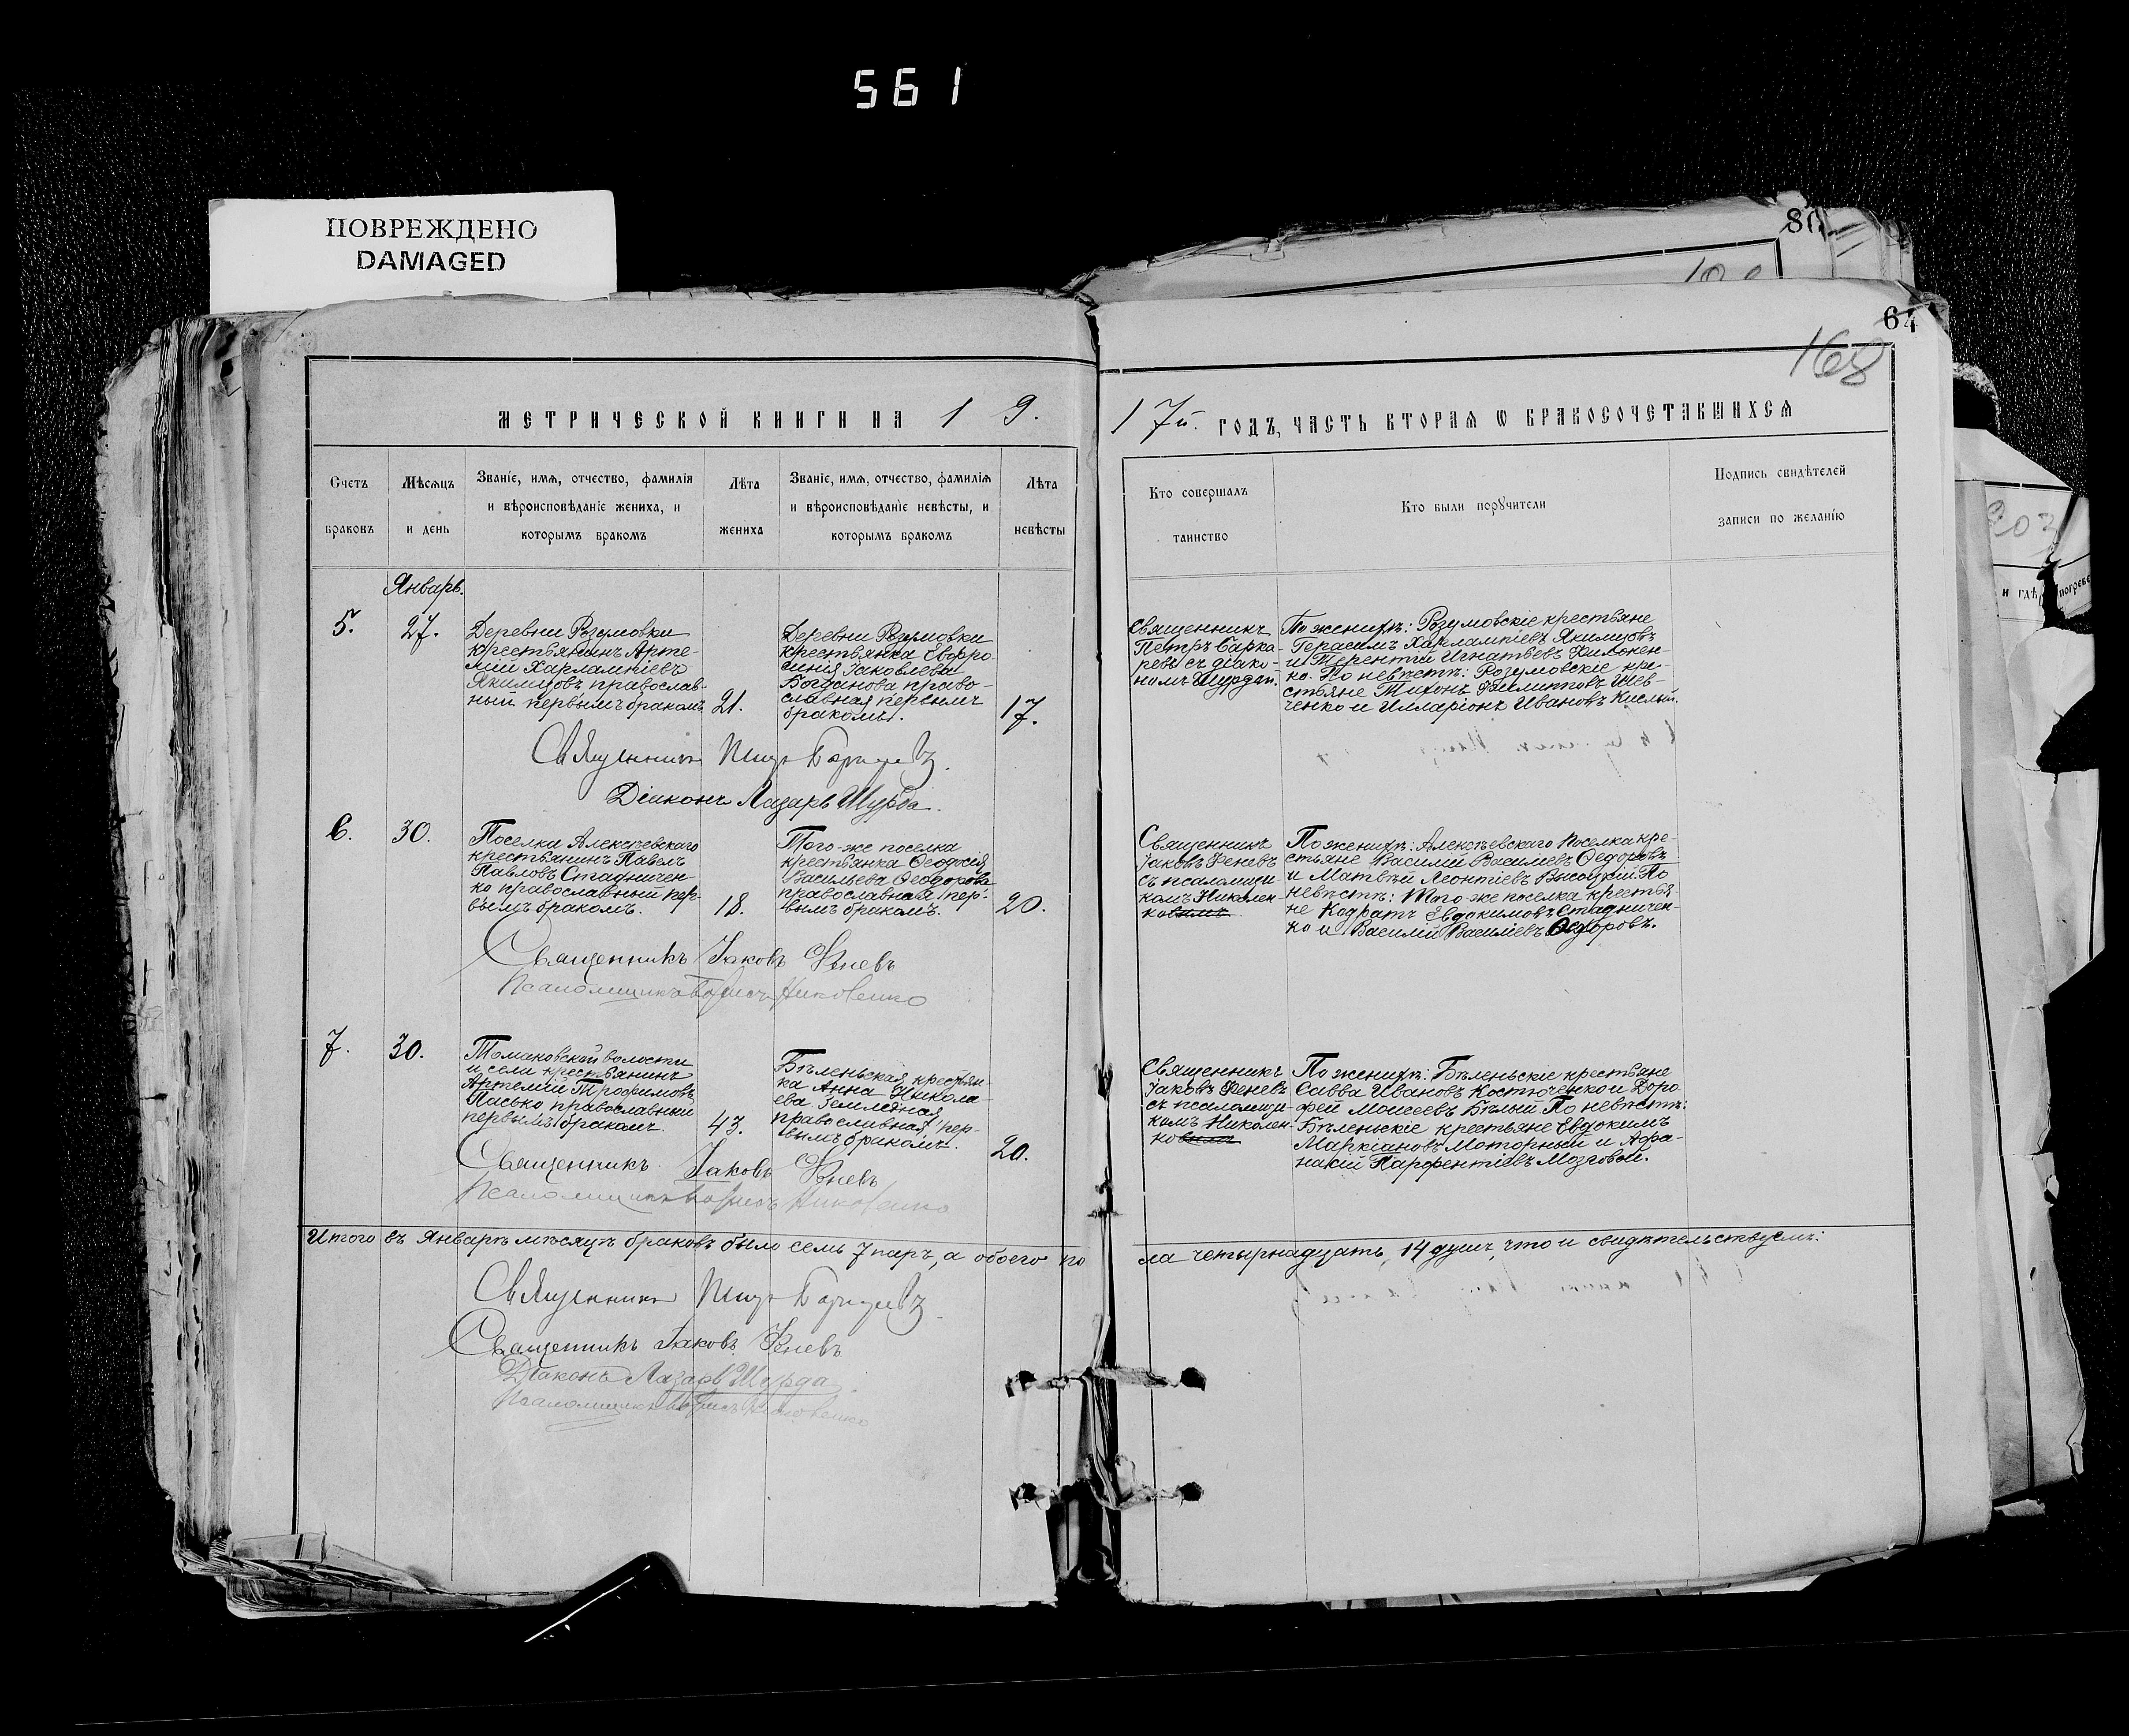 561
ПОВРЕЖДЕНО
DAMAGED
86
64
168
МЕТРИЧЕСКОЙ КНИГИ НА 19.
17й. ГОДЪ, ЧАСТЬ ВТОРАЯ Ѡ БРАКОСОЧЕТАВШИХСЯ
Счетъ браковъ
Мѣсяцъ и день
Званіе, имя, отчество, фамилія
и вѣроисповѣданіе жениха, и
которымъ бракомъ
Лѣта жениха
Званіе, имя, отчество, фамилія
и вѣроисповѣданіе невѣсты, и
которымъ бракомъ
Лѣта невѣсты
Кто совершалъ
таинство
Кто были поручители
Подпись свидѣтелей
записи по желанію
203
и гдѣ погребе
Январь.
5.
27.
Деревни Розумовки
крестьянинъ Арте-
мій Харлампіевъ
Якимцовъ православ-
ный первымъ бракомъ
21.
Деревни Розумовки
крестьянка Евфро-
синія Іаковлева
Богданова право-
славная первымъ
бракомъ.
17.
Священникъ
Петръ
ревъ съ діако-
номъ Шурдай.
По женихѣ: Розумовскіе крестьяне
Герасимъ Харлампіевъ Якимцовъ
и Терентій Игнатьевъ Филонен-
ко. По невѣстѣ: Розумовскіе кре-
стьяне Тихонъ Филипповъ Шев-
ченко и Илларіонъ Ивановъ Кислый.
Священникъ Петръ
Діаконъ Лазарь Шурда.
6.
30.
Поселка Алексѣевскаго
крестьянинъ Павелъ
Павловъ Стадничен-
ко православный пер-
вымъ бракомъ.
18.
Того-же поселка
крестьянка Ѳеодосія
Васильева Ѳеодорова
православная пер-
вымъ бракомъ.
20.
Священникъ
Іаковъ Феневъ
съ псаломщи-
комъ Николен-
По женихѣ: Алексѣевскаго поселка кре-
стьяне Василій Василіевъ Ѳедоровъ
и Матвѣй Леонтіевъ Высоцкій. По
невѣстѣ: Того-же поселка крестья-
не Кодратъ Евдокимовъ Стадничен-
ко и Василій Василіевъ Ѳедоровъ.
Священникъ Іаковъ Феневъ
Псаломщикъ Борисъ
7.
30.
Томаковской волости
и села крестьянинъ
Артемій Трофимовъ
Пасько православный
первымъ бракомъ.
43.
Бѣленьская крестьян-
ка Анна Никола-
ева
православная, пер-
вымъ бракомъ.
20.
Священникъ
Іаковъ Феневъ
съ псаломщи-
комъ Николен-
По женихѣ: Бѣленьскіе крестьяне
Савва Ивановъ Костюченко и Доро-
фей Моисеевъ Бѣлый По невѣстѣ:
Бѣленьскіе крестьяне Евдокимъ
Маркіановъ Моторный и Афа-
насій Парфентіевъ Мозговой.
Священникъ Іаковъ Феневъ
Псаломщикъ Борисъ
Итого въ Январѣ мѣсяцѣ браковъ было семь 7 паръ, а обоего по
ла четырнадцать, 14 душъ, что и свидѣтельствуемъ:
Священникъ Петръ
Священникъ Іаковъ Феневъ
Діаконъ Лазарь Шурда.
Псаломщикъ Борисъ